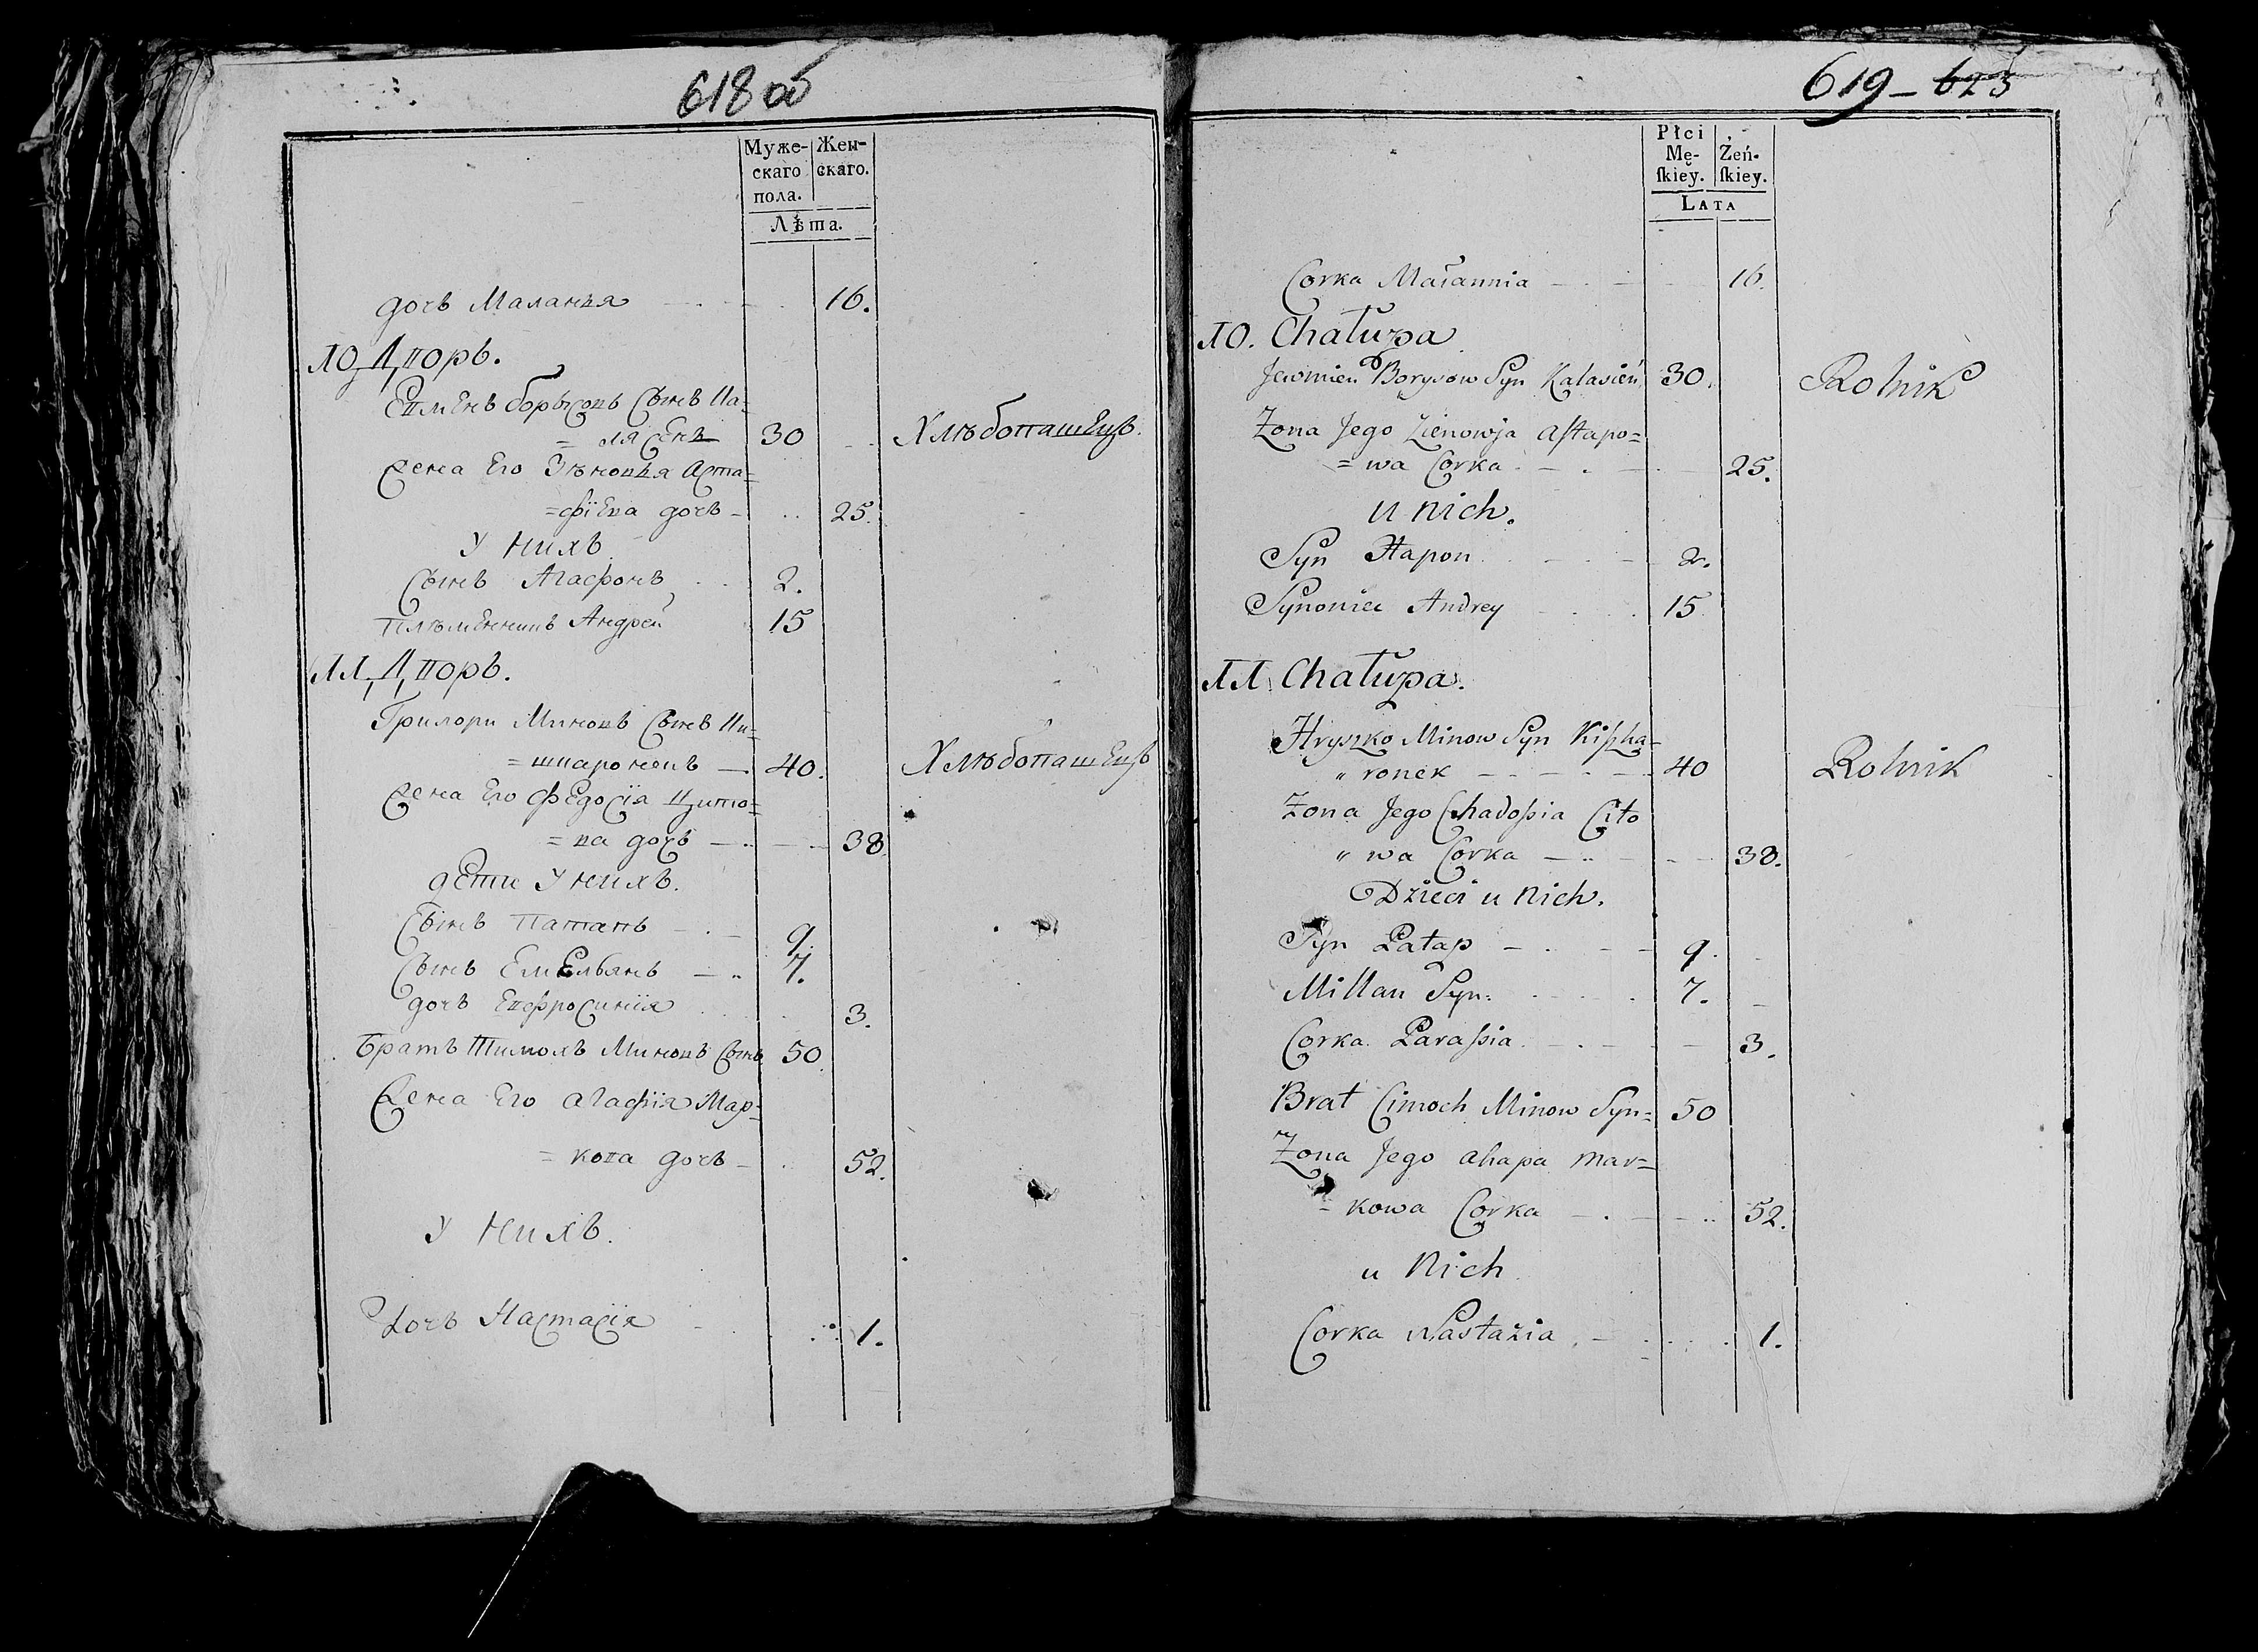 618 об
Муже-
скаго
пола.
Жен-
скаго.
Лѣта.
дочь Маланья 16.
10 Дворъ.
Евменъ борысовъ Сынъ Ка=
= лясень 30 Хлѣбопашецъ.
Жена Его Зѣновья Аста=
=фіева дочь 25.
У нихъ
Сынъ Агафонъ 2.
Племенникъ Андрей 15
11 Дворъ.
Григори Миновъ Сынъ Ки=
= шкаронокъ 40. Хлѣбопашецъ
Жена Его Федосія Цито=
= ва дочь 38.
дети У нихъ.
Сынъ Патапъ 9.
Сынъ Емельянъ 7.
дочь Евфросинія 3.
Братъ Тимохъ Миновъ Сынъ 50.
Жена Его Агафія Мар=
= кова дочь 52.
У нихъ.
Дочь Настасія 1.
619 - 623
Płci
Mę-
ſkiey.
Żeń-
ſkiey.
LATA
Corka Małannia 16.
10. Chałupa
Jewmien Borysow Syn Kalasień 30. Rolnik
Żona Jego Zienowja Astapo=
= wa Corka 25.
u nich.
Syn Hapon 2.
Synowiec Andrey 15
11 Chałupa.
Hryszko Minow Syn Kiszka=
" ronek 40 Rolnik
Żona Jego Chadosia Cito
" wa Corka 38.
Dzieci u nich.
Syn Patap 9.
Millan Syn 7.
Corka Parasia 3.
Brat Cimoch Minow Syn= 50
Żona Jego ahapa Mar=
= kowa Corka 52.
u Nich
Corka Nastazia 1.